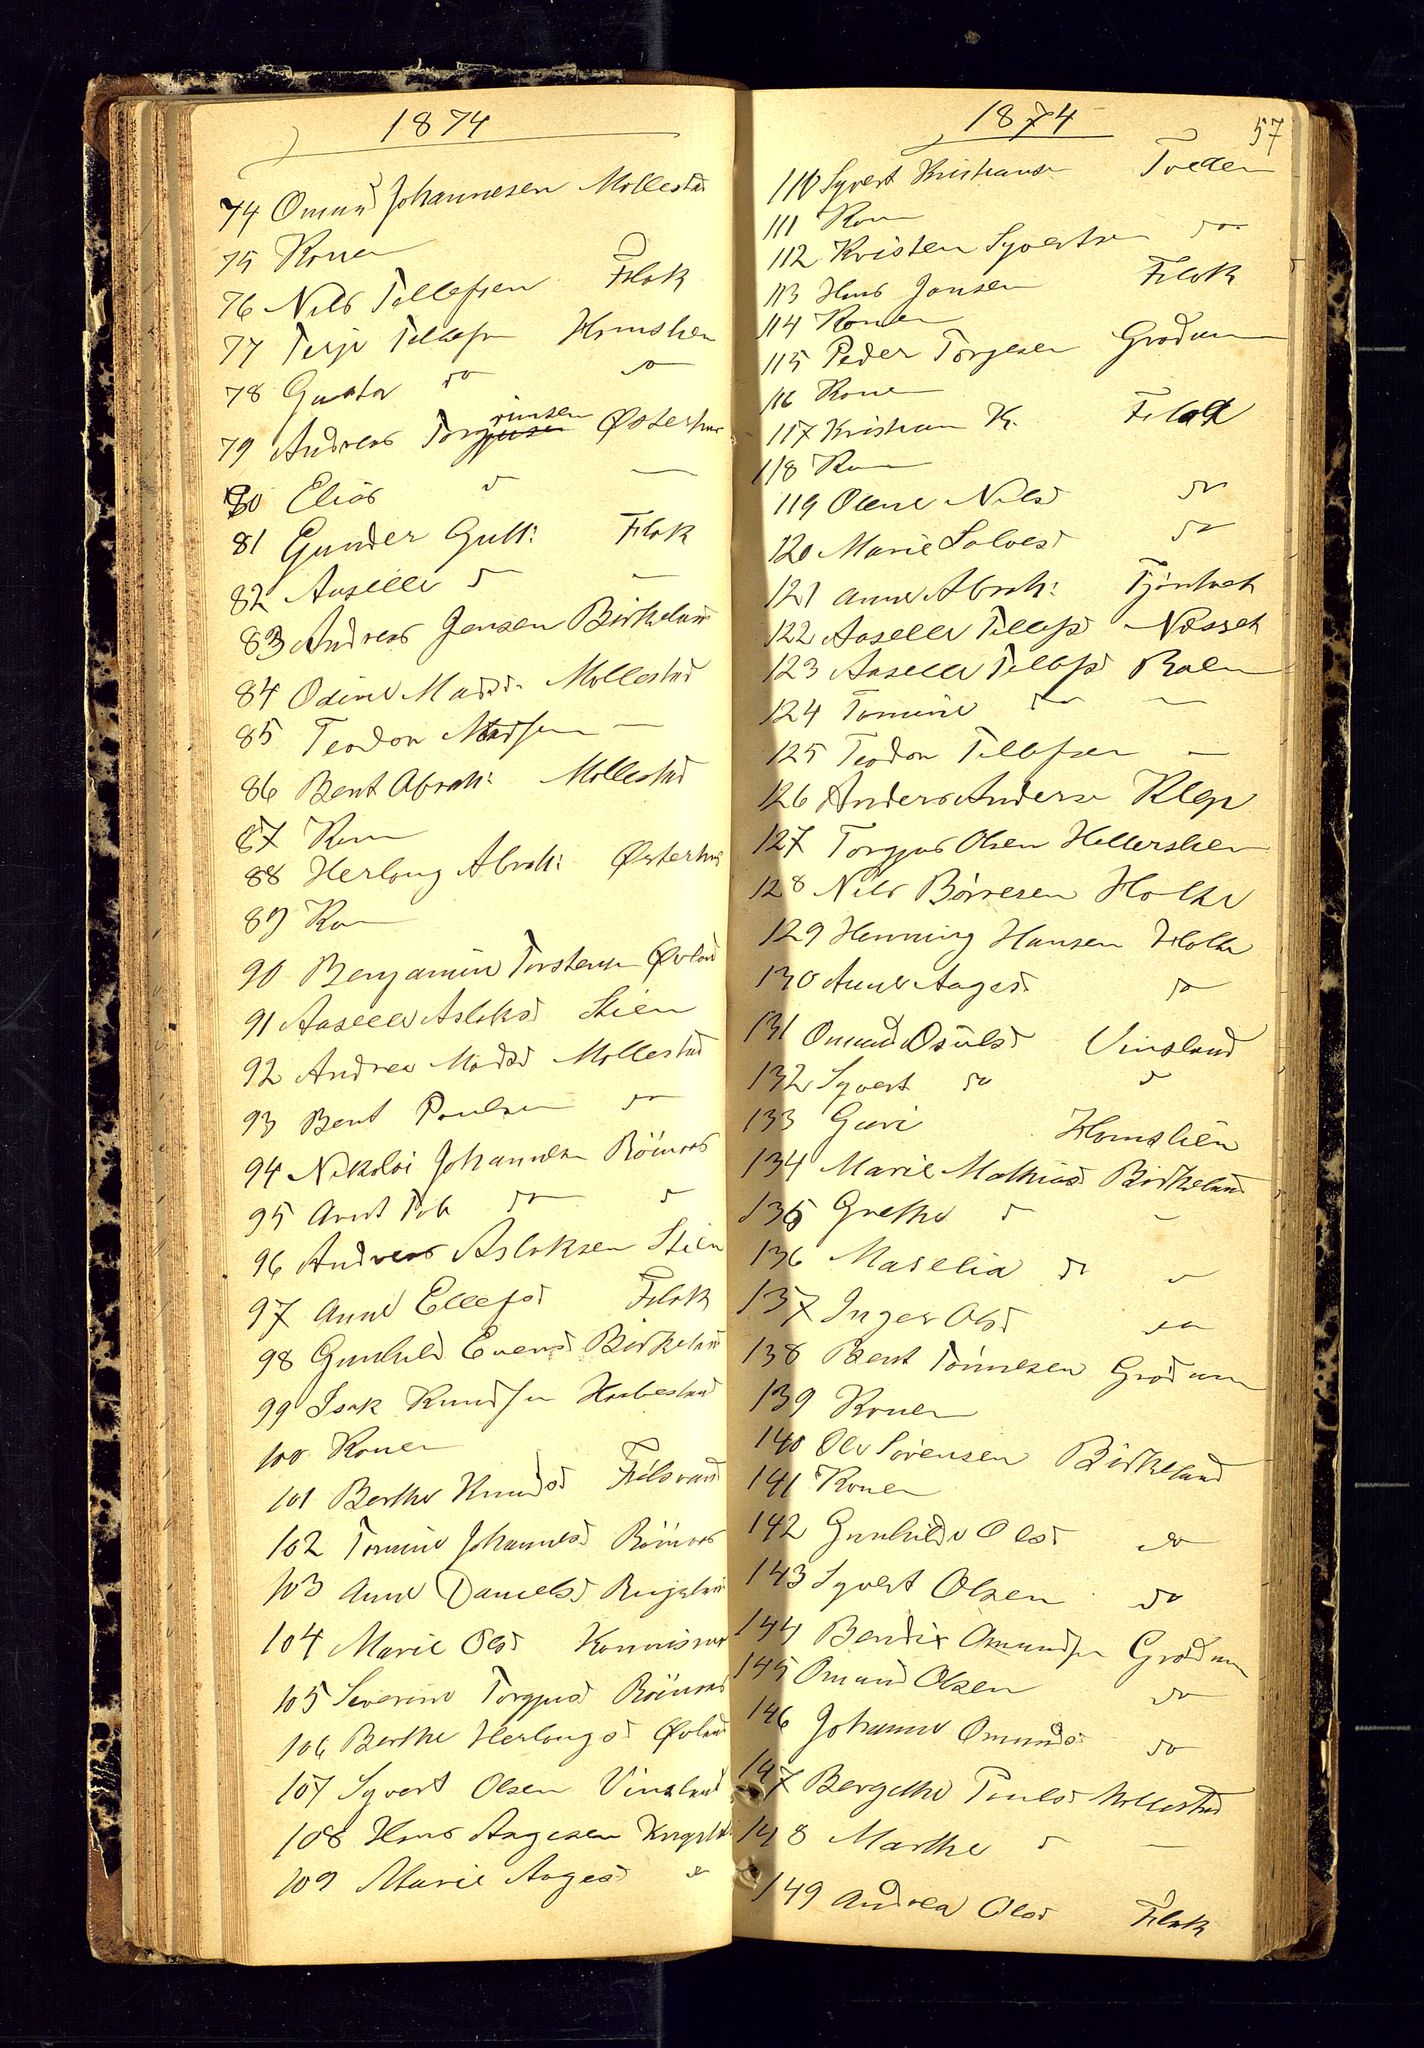 1874
74 Omund Johannesen Mollestad
75 Konen
76 Nils Tellefsen Flak
77 Terje Tellefsn Homslien
78 Gustav do do
79 Andreas Torgrimsen Østerhus
80 Elias d —
81 Gunder Gutt: Flak
82 Aaselle d —
83 Andreas Jensen Birkeland
84 Odine Madsd. Mollestad
85 Teodor Madsen —
86 Bent Abrah: Mollestad
87 Kon
88 Herlong Abrah: Østerhus
89 Kon
90 Benjamin Torstensn Øvland
91 Aaselle Aslaksd Stien
92 Andrea Madsd Mollestad
93 Bent Paulsen do
94 Nikolai Johannesn Röinaas
95 Arnt Tob do d
96 Andreas Aslaksen Stien
97 Anne Ellefsd Flak
98 Gunhild Evensd Birkeland
99 Isak Knudsen Haabesland
100 Konen
101 Berthe Knudsd
102 Tomine Johannesd Röinaas
103 Anne Danielsd
104 Marie Olsd
105 Severine Torgjusd Röinaas
106 Berthe Herlongsd Øvland
107 Syvert Olsen Vinsland
108 Hans Aagesen
109 Marie Aagesd do
1874
57
110 Syvert Kristiansn Tveden
111 Kon
112 Kristen Syvertsen do
113 Hans Jansen Flak
114 Konen
115 Peder Torgesen Grødum
116 Konen
117 Kristian K. Flak
118 Kon
119 Olene Nilsd do
120 Marie Salvesd do
121 Anne Abrah:
122 Aaselle Tellefsd Næsset
123 Aaselle Tellefsd Roen
124 Tomine do —
125 Teodor Tellefsen —
126 Anders Andersn Klep
127 Torgjus Olsen Hellerslien
128 Nils Børresen Holte
129 Henning Hansen Holte
130 Anne Aagesd. do
131 Omund Osulsd Vinsland
132 Syvert do d
133 Guri Homslien
134 Marie Mathiasd Birkeland
135 Grethe d —
136 Maselia do d
137 Inger Olsd do
138 Bent Tönnesen Grødum
139 Konen
140 Ole Sørensen Birkeland
141 Konen
142 Gunhilde Olsd do
143 Syvert Olsen do
144 Bendix Omundsn Grødum
145 Omund Olsen do
146 Johanne Omundsd do
147 Bergithe Paulsd Mollestad
148 Marthe d —
149 Andrea Olsd Flak